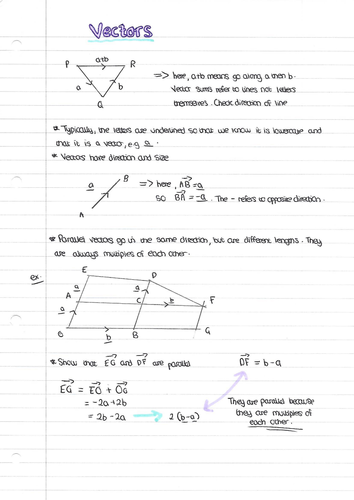 Vectors
P
a+b
R
a
b
Q
=> here, a+b means go along a then b.
Vector sums refer to lines not letters
themselves. Check direction of line
* Typically, the letters are underlined so that we know it is lowercase and
that it is a vector, e.g a.
* Vectors have direction and size
a
B
A
=> here, AB = a
so BA = -a. The - refers to opposite direction.
* Parallel vectors go in the same direction, but are different lengths. They
are always multiples of each other.
ex.
E
D
a
a
A
C
b
F
a
O
b
B
G
* Show that EG and DF are parallel
DF = b-a
EG = EO + OG
= -2a+2b
= 2b-2a
2(b-a)
They are parallel because
they are multiples of
each other.